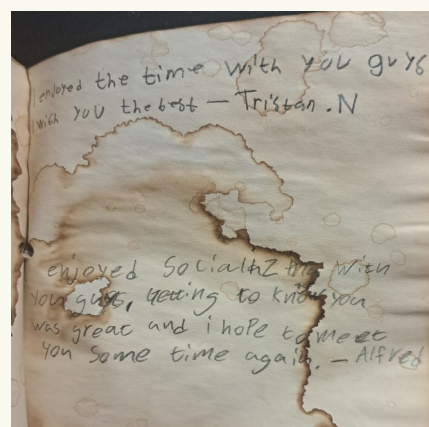 I enjoyed the time with you guys
wish you the best — Tristan .N
enjoyed Socialh2 with
you guys, getting to know you
was great and i hope to meet
you some time again. — Alfred